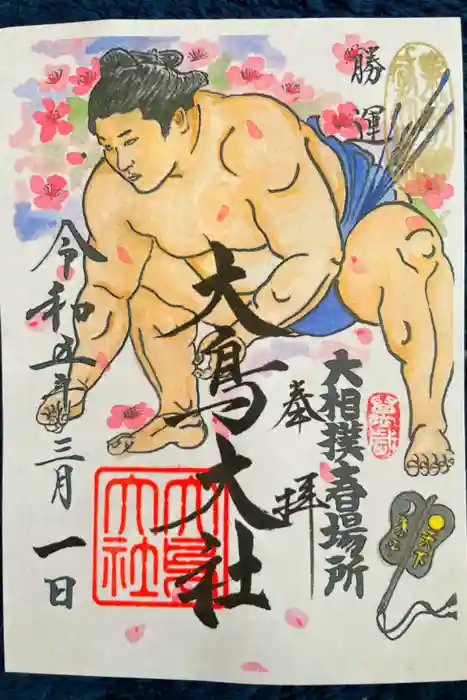 勝運
奉拝
大相撲春場所
大鳥大社
大鳥大社
令和五年三月一日